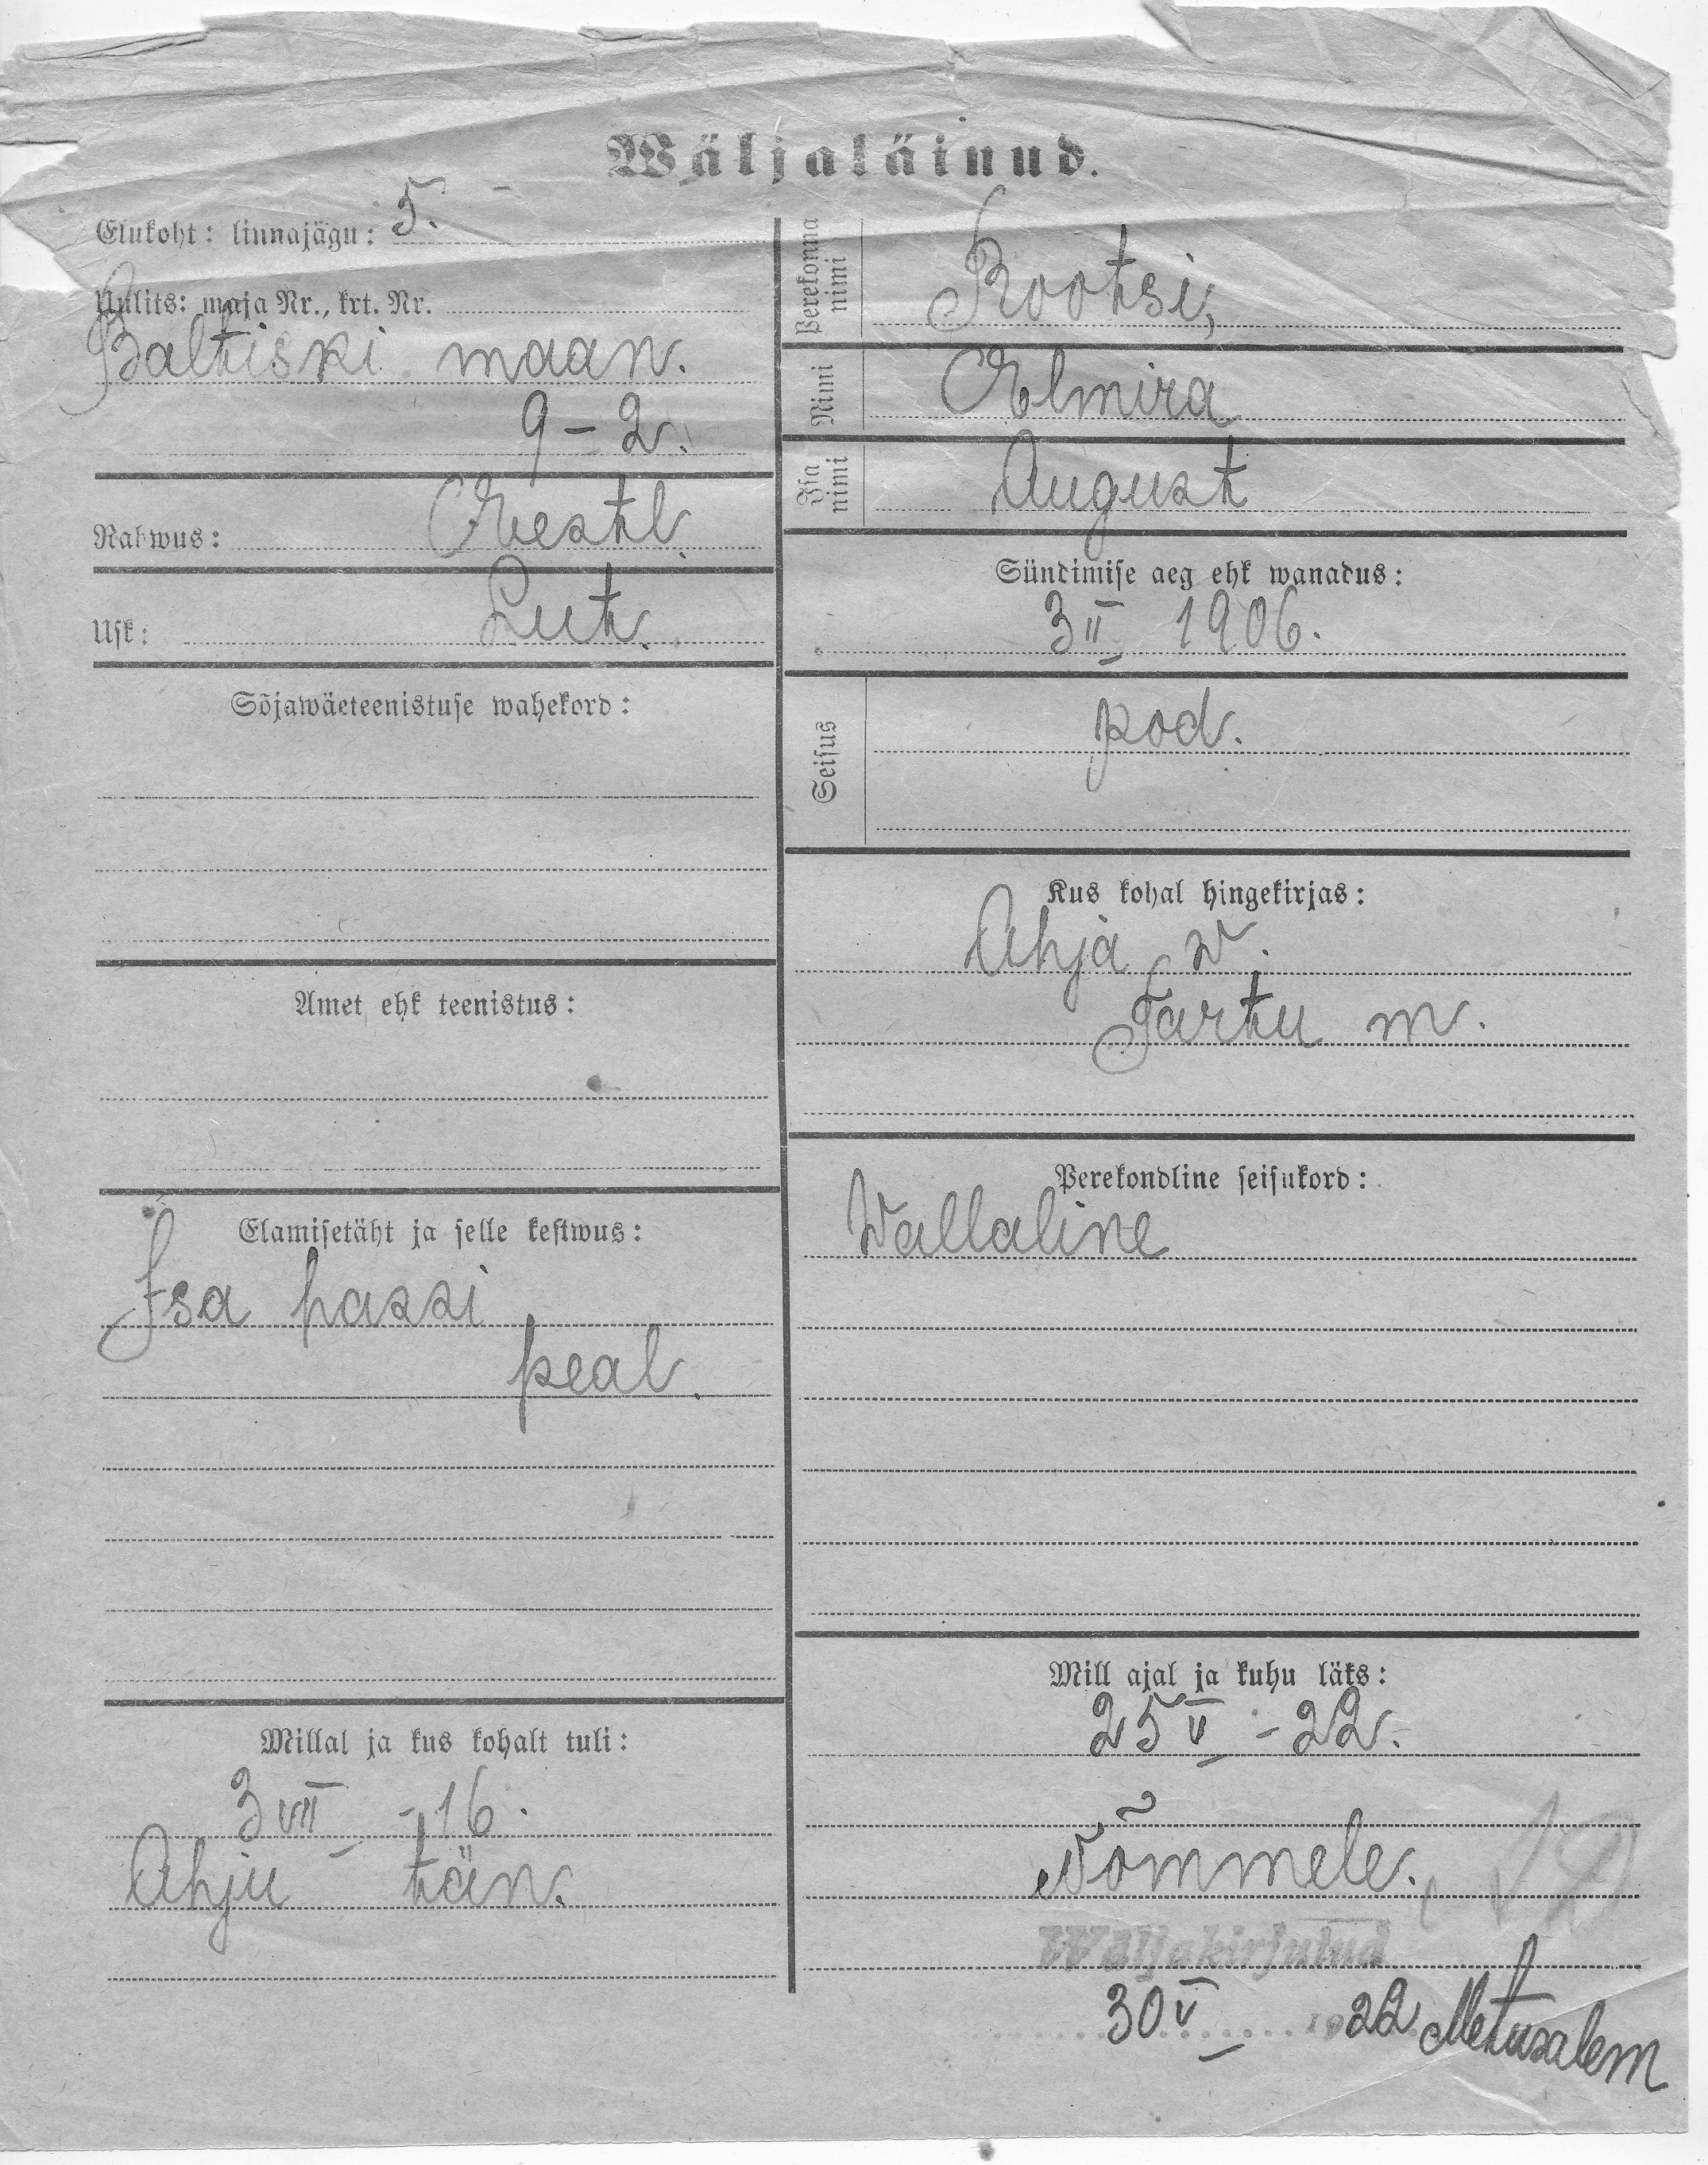 Wäljaläinud.
Elukoht: linnajägu: 5. –
Uulits: maja Nr., krt. Nr.
Baltiski maan.
9 – 2.
Rahwus: Eestl.
Usk: Lut.
Sõjawäeteenistuse wahekord:
Amet ehk teenistus:
Elamisetäht ja selle kestwus:
Isa passi
peal.
Millal ja kus kohalt tuli:
3 VII – 16.
Ahju tän.
Perekonna nimi Rootsi,
Nimi Elmira
Isa nimi August
Sündimise aeg ehk wanadus:
3 II 1906.
Seisus kod.
Kus kohal hingekirjas:
Ahja w.
Tartu m.
Perekondline seisukord:
Wallaline
Mill ajal ja kuhu läks:
25 V – 22.
Nõmmele.
Wäljakirjutud
30 V 1922 Metusalem